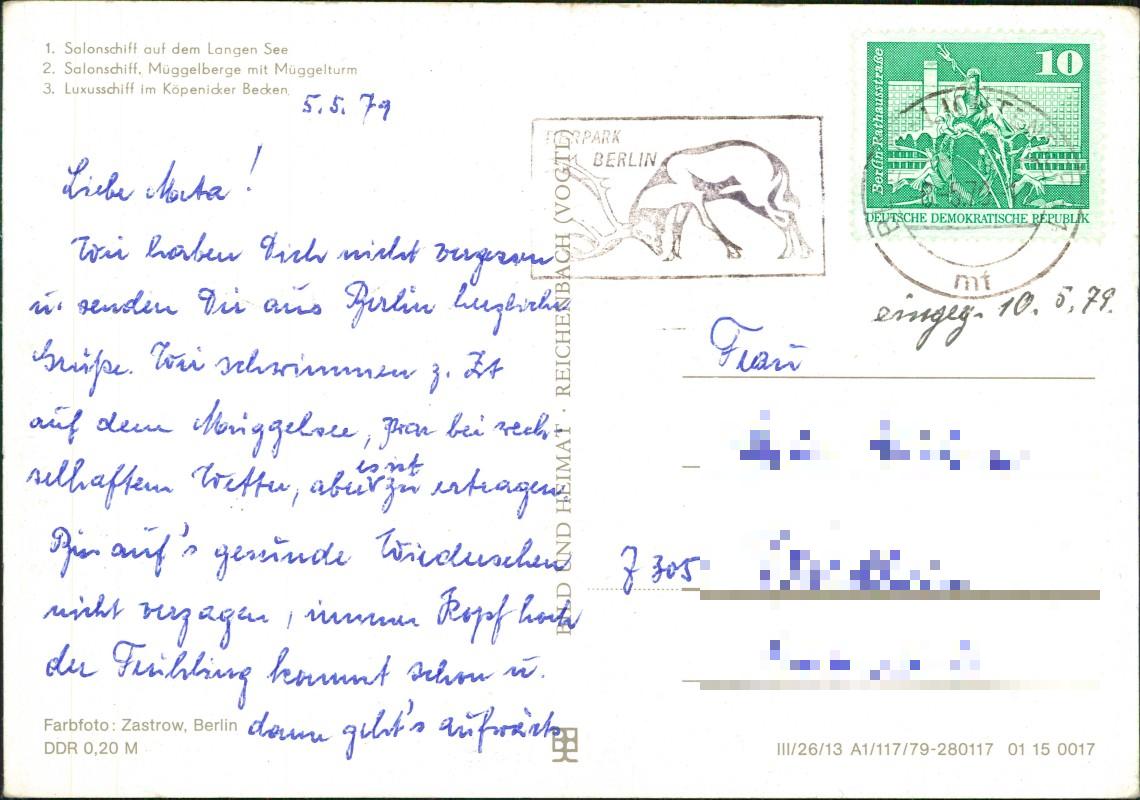 1. Salonschiff auf dem Langen See
2. Salonschiff, Müggelberge mit Müggelturm
3. Luxusschiff im Köpenicker Becken
5.5.79
Liebe Marta!
Wir haben Dich nicht vergessen
u. senden Dir aus Berlin herzliche
Grüße. Wir schwimmen z. Zt
auf dem Müggelsee, zwar bei wech-
selhaftem Wetter, aber es ist zu ertragen.
Bis auf's gesunde Wiedersehen
nicht verzagen, immer Kopf hoch
der Frühling kommt schon u.
dann geht's aufwärts
Farbfoto: Zastrow, Berlin
DDR 0,20 M
BILD UND HEIMAT · REICHENBACH (VOGTL)
TIERPARK
BERLIN
10
Berlin-Rathausstraße
DEUTSCHE DEMOKRATISCHE REPUBLIK
mf
eingeg. 10.5.79.
Frau
7305
III/26/13 A1/117/79-280117 01 15 0017